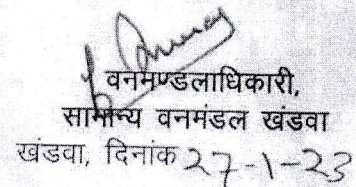 वनमण्डलाधिकारी,
सामान्य वनमंडल खंडवा
खंडवा, दिनांक 27-1-23